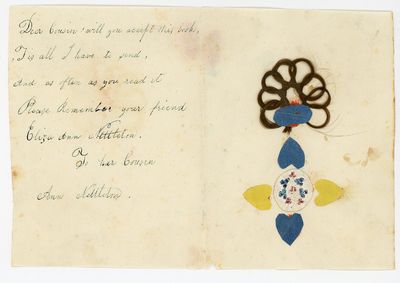 Dear Cousin will you accept this book,
'Tis all I have to send,
And as often as you read it
Please Remember your friend
Eliza Ann Nettleton.
To her Cousin
Ann Nettleton.